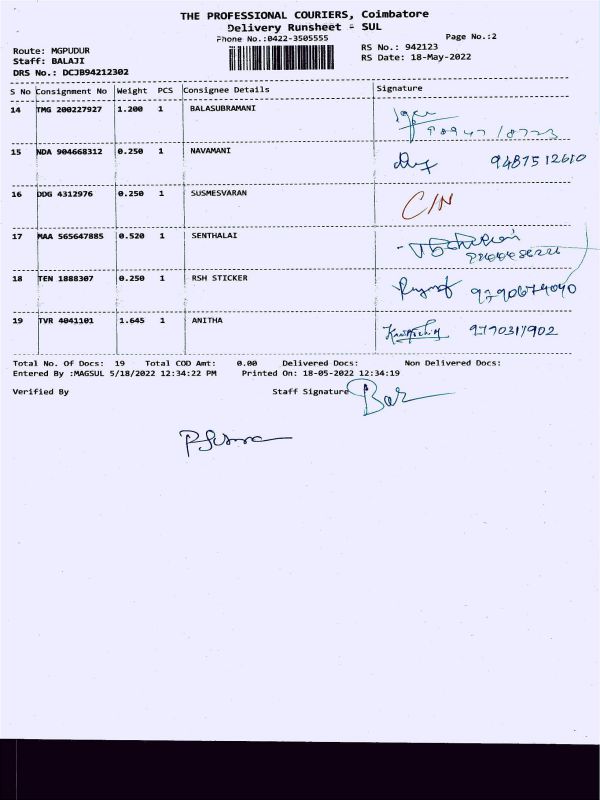 THE PROFESSIONAL COURIERS, Coimbatore
Delivery Runsheet - SUL
Phone No.:0422-3505555
Page No.:2
Route: MGPUDUR
RS No.: 942123
Staff: BALAJI
RS Date: 18-May-2022
DRS No.: DCJB94212302
S No Consignment No Weight PCS Consignee Details Signature
14 TMG 200227927 1.200 1 BALASUBRAMANI
15 NDA 904668312 0.250 1 NAVAMANI 9487512610
16 DDG 4312976 0.250 1 SUSMESVARAN C/N
17 MAA 565647885 0.520 1 SENTHALAI
18 TEN 1888307 0.250 1 RSH STICKER 9790674090
19 TVR 4041101 1.645 1 ANITHA 9770317902
Total No. Of Docs: 19 Total COD Amt: 0.00 Delivered Docs: Non Delivered Docs:
Entered By :MAGSUL 5/18/2022 12:34:22 PM Printed On: 18-05-2022 12:34:19
Verified By Staff Signature